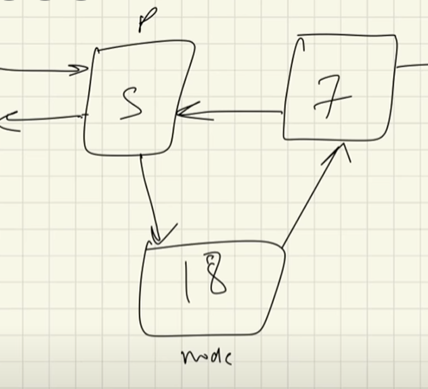 P
5 7
18
node